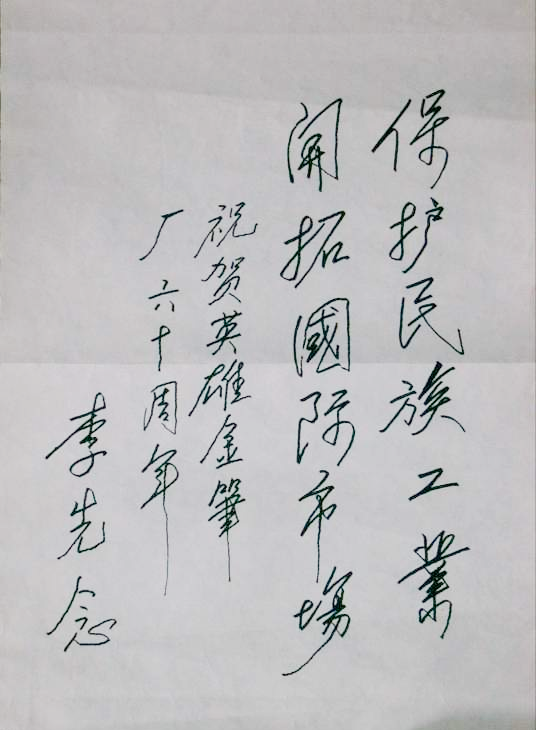 保护民族工業
開拓國际市場
祝贺英雄金筆
厂六十周年
李先念